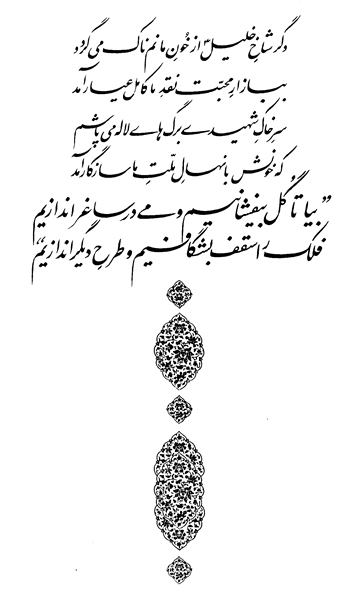 دگر شاخِ خلیلؑ از خُونِ ما نم ناک می گردد
ببازارِ محبّت نقدِ ما کامل عیار آمد
سرِ خاکِ شہیدے برگ ہاے لالہ می پاشم
کہ خونش با نہالِ ملّتِ ما سازگار آمد
”بیا تا گُل بیفشانیم و مے در ساغر اندازیم
فلک را سقف بشگافیم و طرحِ دیگر اندازیم“